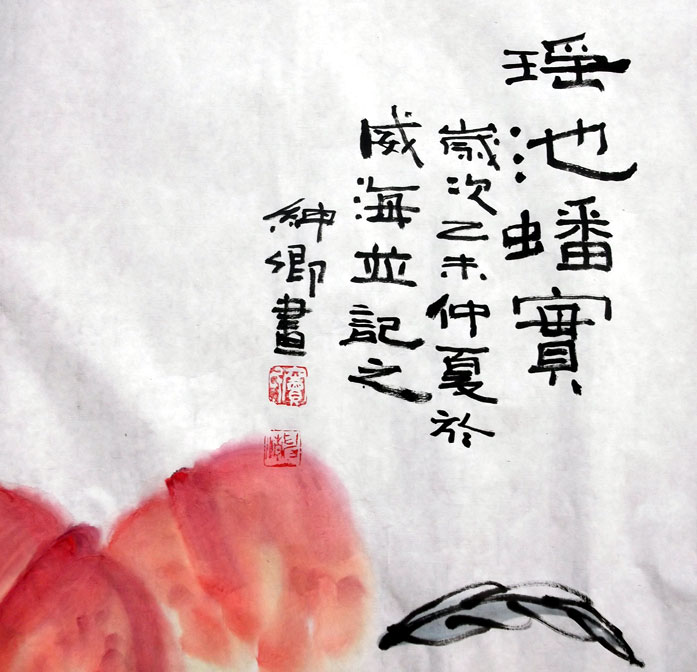 瑶池蟠實
歲次乙未仲夏於
威海並記之
紳卿畫